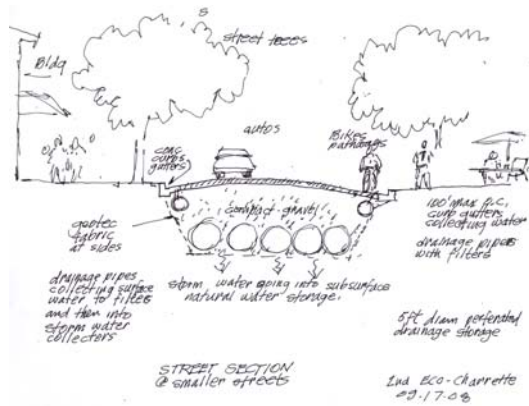 S
street trees
Bldg
autos
Bikes
pathways
conc
curbs
gutters
compact gravel
geotec
fabric
at sides
100' max o.c.
curb gutters
collecting water
drainage pipes
with filters
drainage pipes
collecting surface
water to filters
and then into
storm water
collectors
storm water going into subsurface
natural water storage.
5ft diam perforated
drainage storage
STREET SECTION
@ smaller streets
2nd Eco-Charrette
09.17.08